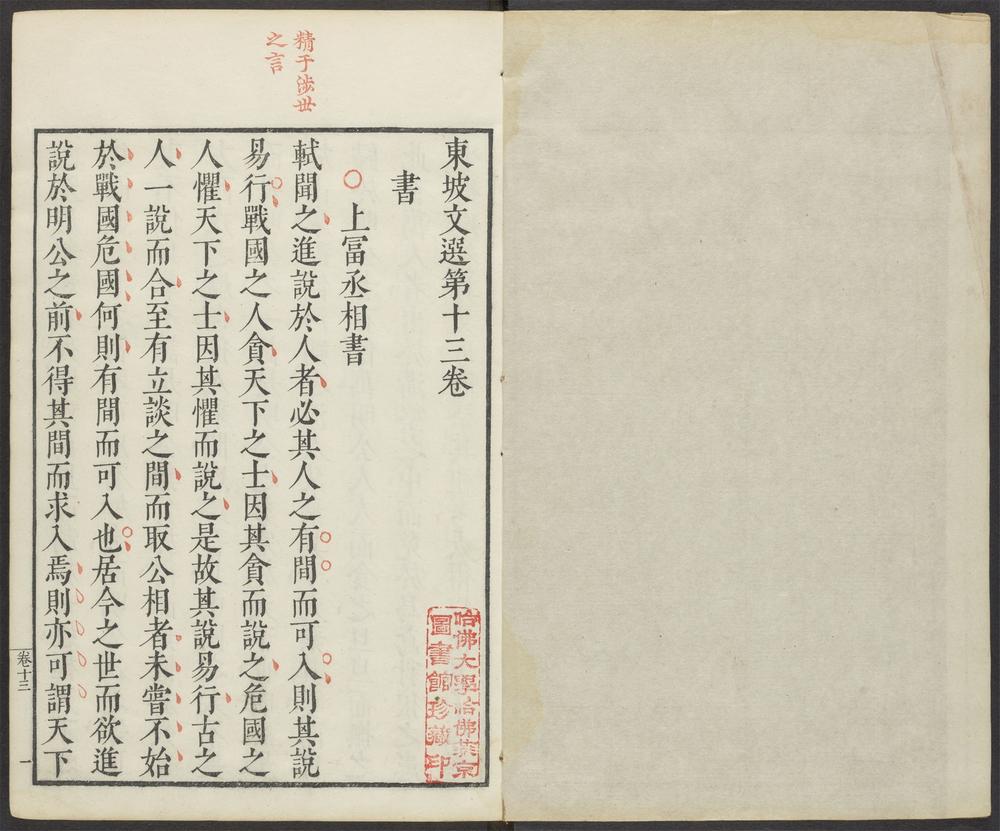 精于涉世
之言
東坡文選第十三卷
書
○上富丞相書
軾聞之進說於人者必其人之有間而可入則其說
易行戰國之人貪天下之士因其貪而說之危國之
人懼天下之士因其懼而說之是故其說易行古之
人一說而合至有立談之間而取公相者未嘗不始
於戰國危國何則有間而可入也居今之世而欲進
說於明公之前不得其間而求入焉則亦可謂天下
卷十三
一
哈佛大學哈佛燕京
圖書館珍藏印